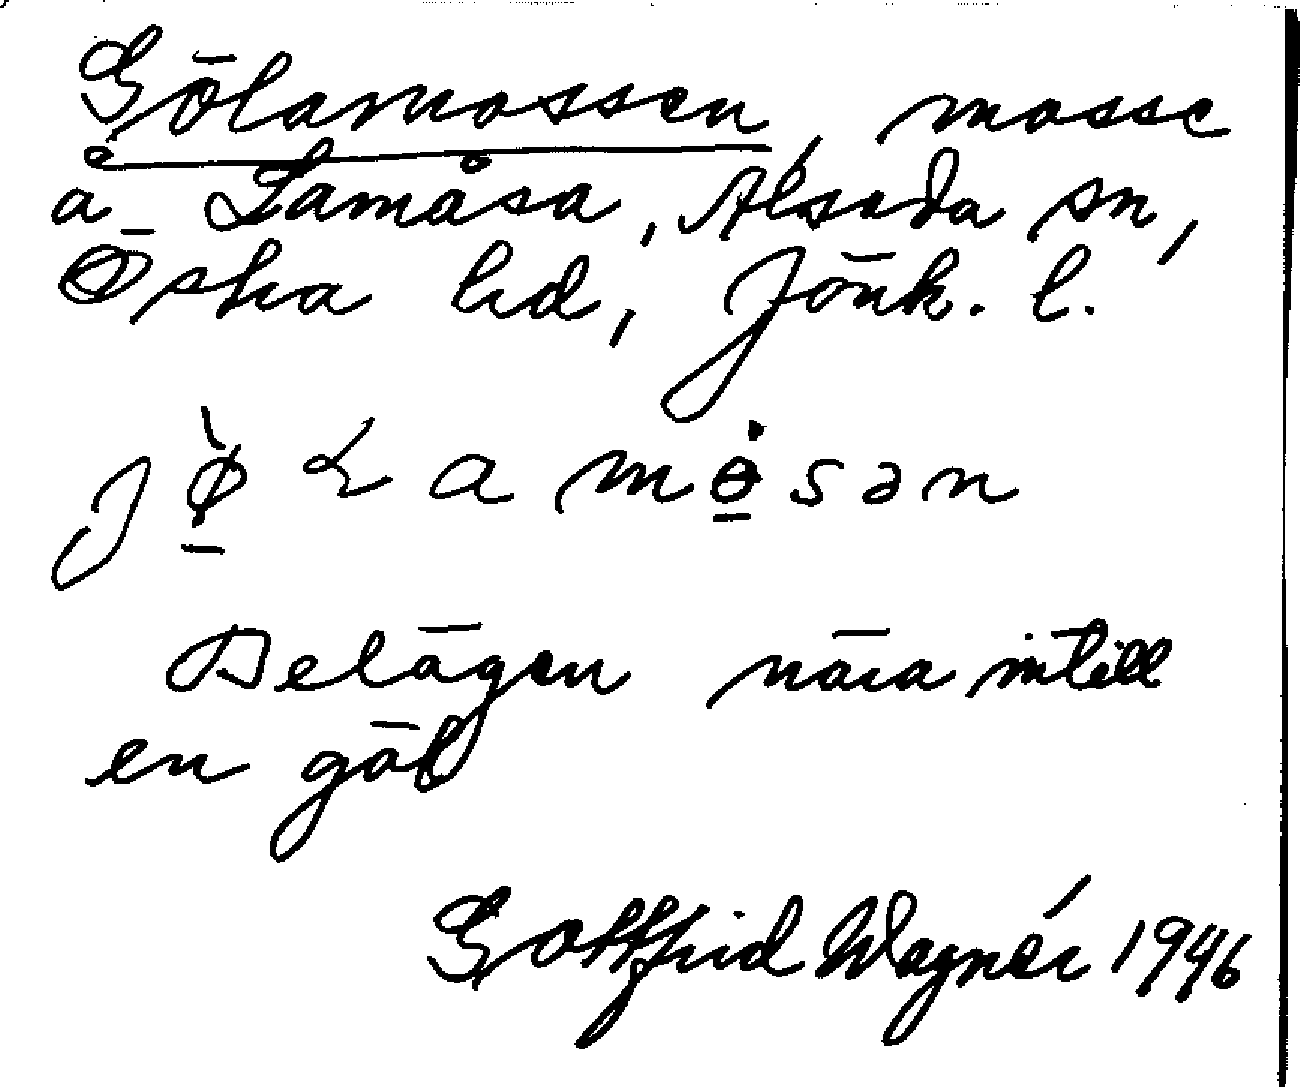 Gölamossen, mosse
å Lamåsa, Alseda sn,
Östra hd, Jönk. l.
Belägen nära intill
en göl
Gottfrid Wagnér 1946